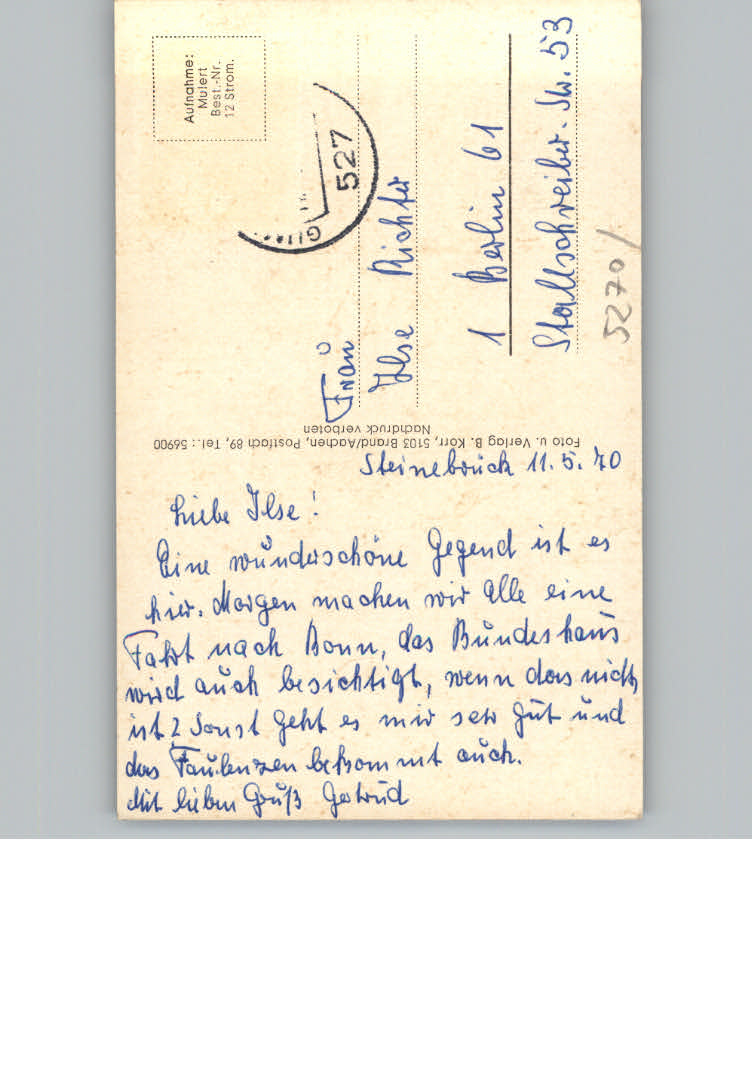 Aufnahme:
Mulert
Best.-Nr.
12 Strom.
527
Frau
Ilse Richter
1 Berlin 61
Stallschreiber-Str. 53
5270/
Foto u. Verlag B. Korr, 5103 Brand/Aachen, Postfach 89, Tel.: 56900
Nachdruck verboten
Steinebrück 11.5.70
Liebe Ilse!
Eine wunderschöne Gegend ist es
hier. Morgen machen wir alle eine
Fahrt nach Bonn, das Bundeshaus
wird auch besichtigt, wenn das nichts
ist? Sonst geht es mir sehr gut und
das Faulenzen bekommt auch.
Mit lieben Gruß Gertrud